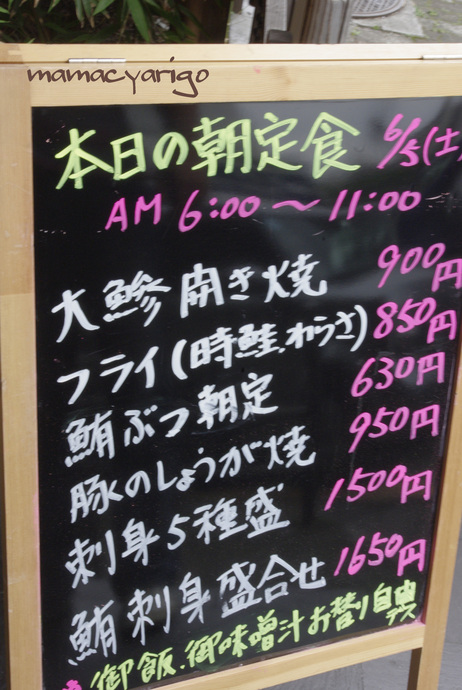 mamacyarigo
本日の朝定食 6/5(土
AM 6:00〜11:00
大鯵開き焼 900円
フライ(時鮭.わらさ) 850円
鮪ぶつ朝定 630円
豚のしょうが焼 950円
刺身5種盛 1500円
鮪刺身盛合せ 1650円
御飯.御味噌汁お替り自由デス